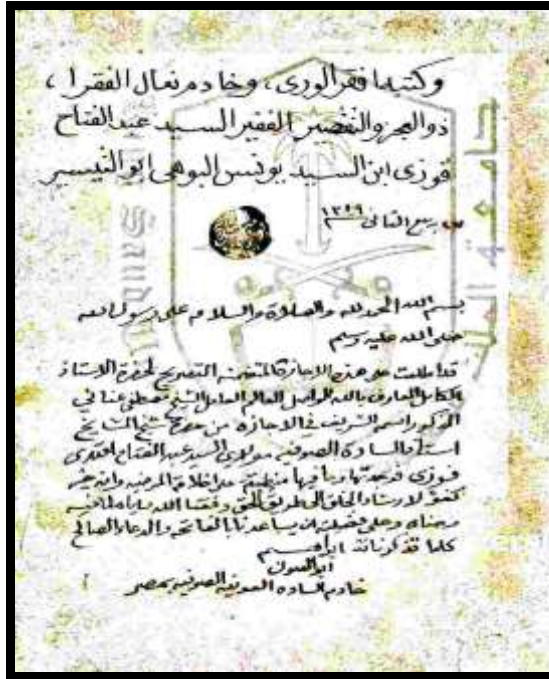 وكتبها فقر الورى، وخادم نعال الفقرا،
ذو العجز والتقصير الفقير السيد عبد الفتاح
فوزى ابن السيد يونس البوهى ابو التيسير
ربيع الثانى ١٣٥٩
بسم الله الحمد لله والصلاة والسلام على رسول الله
صلى الله عليه وسلم
قد اطلعت على هذه الاجازة المتضمنة التصريح لحضرة الاستاذ
الكامل العارف بالله الواصل العالم العامل الشيخ مصطفى عنانى
المذكور اسمه الشريف فى الاجازة من شيخ المشايخ
السادة الصوفيه مولاى السيد عبد الفتاح
فوزى فوجدتها وما فيها منطبقة على اخلاقه المرضيه وانه خير
كفؤ لارشاد الخلق الى طريق الحق وفقنا الله واياه لما فيه
رضاه وعلى فضيلته ان يساعدنا بالفاتحه والدعاء الصالح
كلما تذكرنا ابراهيم
ابو العيون
خادم السادة الصوفيه بمصر
جامعة الملك